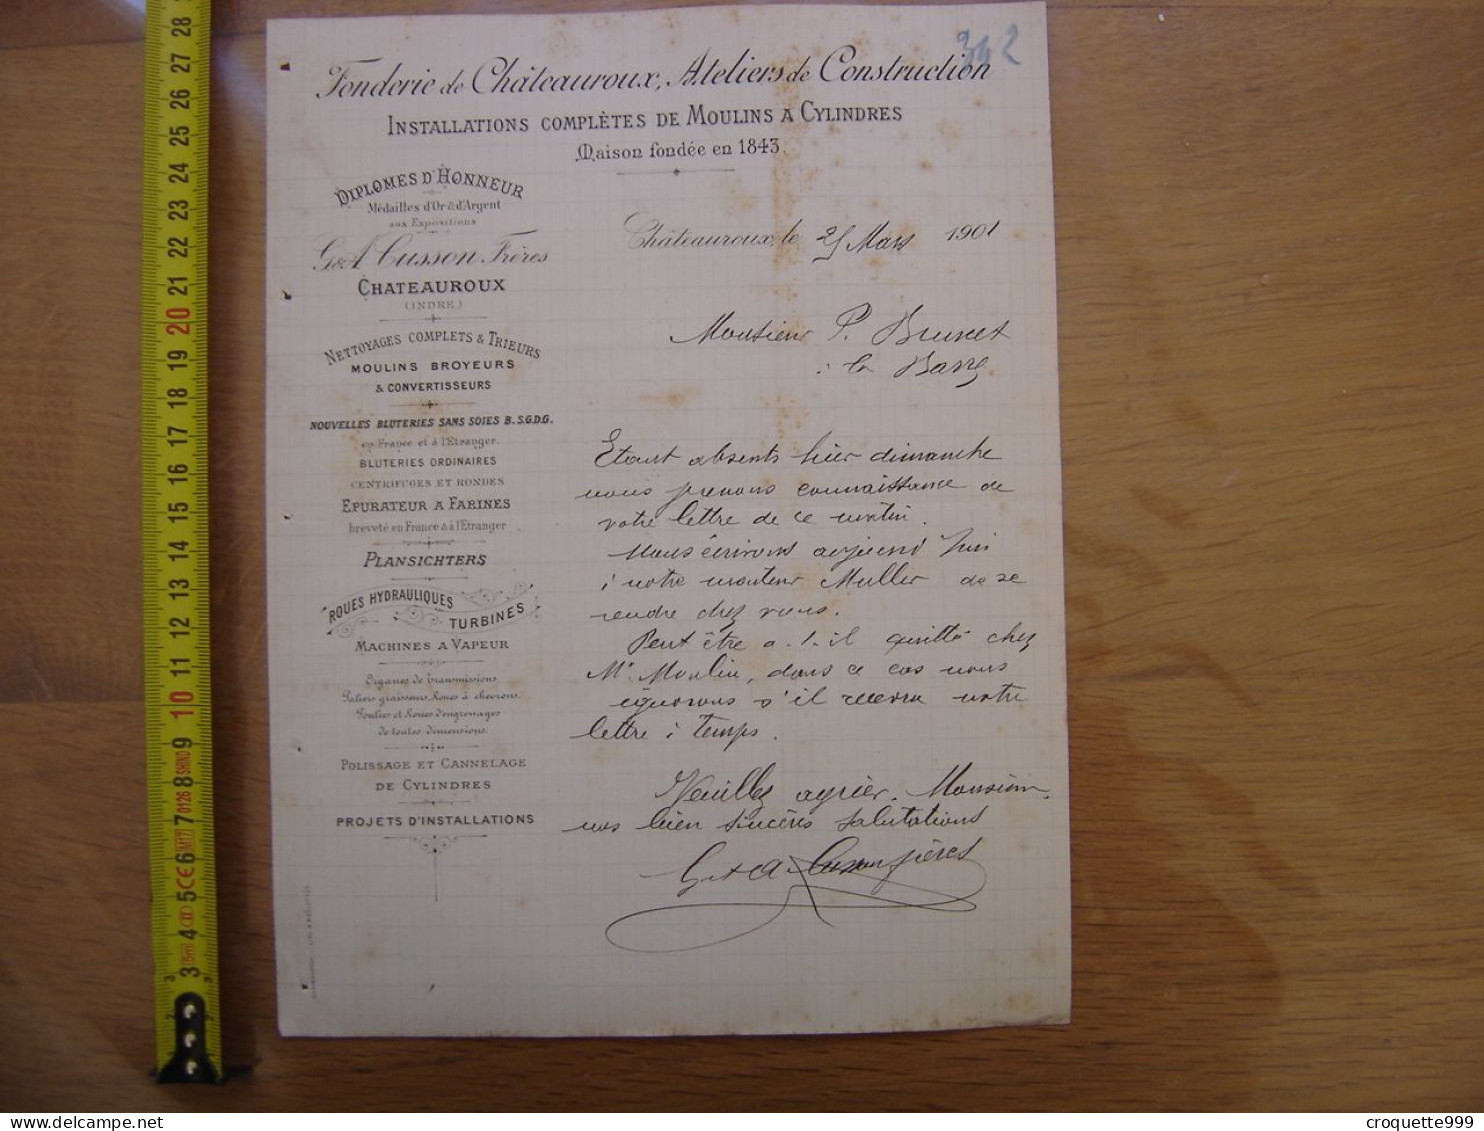 342
Fonderie de Châteauroux, Ateliers de Construction
INSTALLATIONS COMPLÈTES DE MOULINS A CYLINDRES
Maison fondée en 1843.
DIPLOMES D'HONNEUR
Médailles d'Or & d'Argent
aux Expositions
G. & A. Cusson Frères
CHATEAUROUX
(INDRE)
NETTOYAGES COMPLETS & TRIEURS
MOULINS BROYEURS
& CONVERTISSEURS
NOUVELLES BLUTERIES SANS SOIES B.S.G.D.G.
en France et à l'Etranger.
BLUTERIES ORDINAIRES
CENTRIFUGES ET RONDES
EPURATEUR A FARINES
breveté en France & à l'Etranger
PLANSICHTERS
ROUES HYDRAULIQUES
TURBINES
MACHINES A VAPEUR
Organes de transmissions
Paliers graisseurs Roues à chevrons.
Poulies et Roues d'engrenages
de toutes dimensions.
POLISSAGE ET CANNELAGE
DE CYLINDRES
PROJETS D'INSTALLATIONS
Châteauroux, le 25 Mars 1901
Monsieur P. Brunet
à la Barre
Etant absents hier dimanche
nous prenons connaissance de
votre lettre de ce matin.
Nous écrivons aujourd'hui
à notre monteur Muller de se
rendre chez vous.
Peut être a-t-il quitté chez
Mr Moulin, dans ce cas nous
ignorons s'il recevra notre
lettre à temps.
Veuillez agréer, Monsieur,
nos bien sincères salutations
G. & A. Cusson frères
28
27
26
25
24
23
22
21
20
19
18
17
16
15
14
13
12
11
10
9
8
7
6
5
4
3
SHINO
0126
M17
CE
II
5m
croquette999